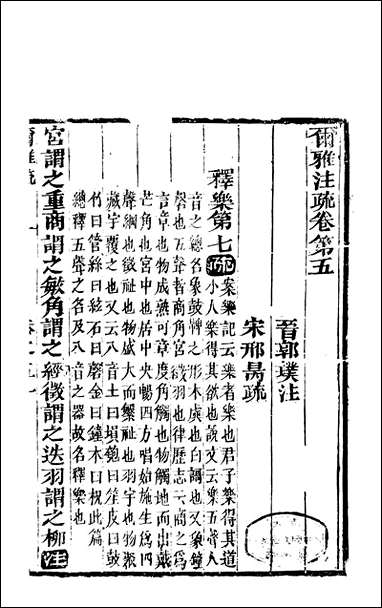 爾雅注疏卷第五
晉郭璞注
宋邢昺疏
釋樂第七
疏
案樂記云樂者樂也君子樂得其道
小人樂得其欲也說文云樂五聲八
音之總名象鼓鞞之形木虡也白謂也又象鐘
磬也五聲者商角宮徵羽也律歷志云商之為
言章也物成熟可章度角觸也物觸地而出戴
芒角也宮中也居中央暢四方唱始施生為四
聲綱也徵祉也物盛大而䌓祉也羽宇也物聚
藏宇覆之也又云八音土曰塤匏曰笙皮曰鼓
竹曰管絲曰絃石曰磬金曰鐘木曰柷此篇
總釋五聲之名及八音之器故名釋樂也
宮謂之重商謂之敏角謂之經徵謂之迭羽謂之柳
注
爾雅疏